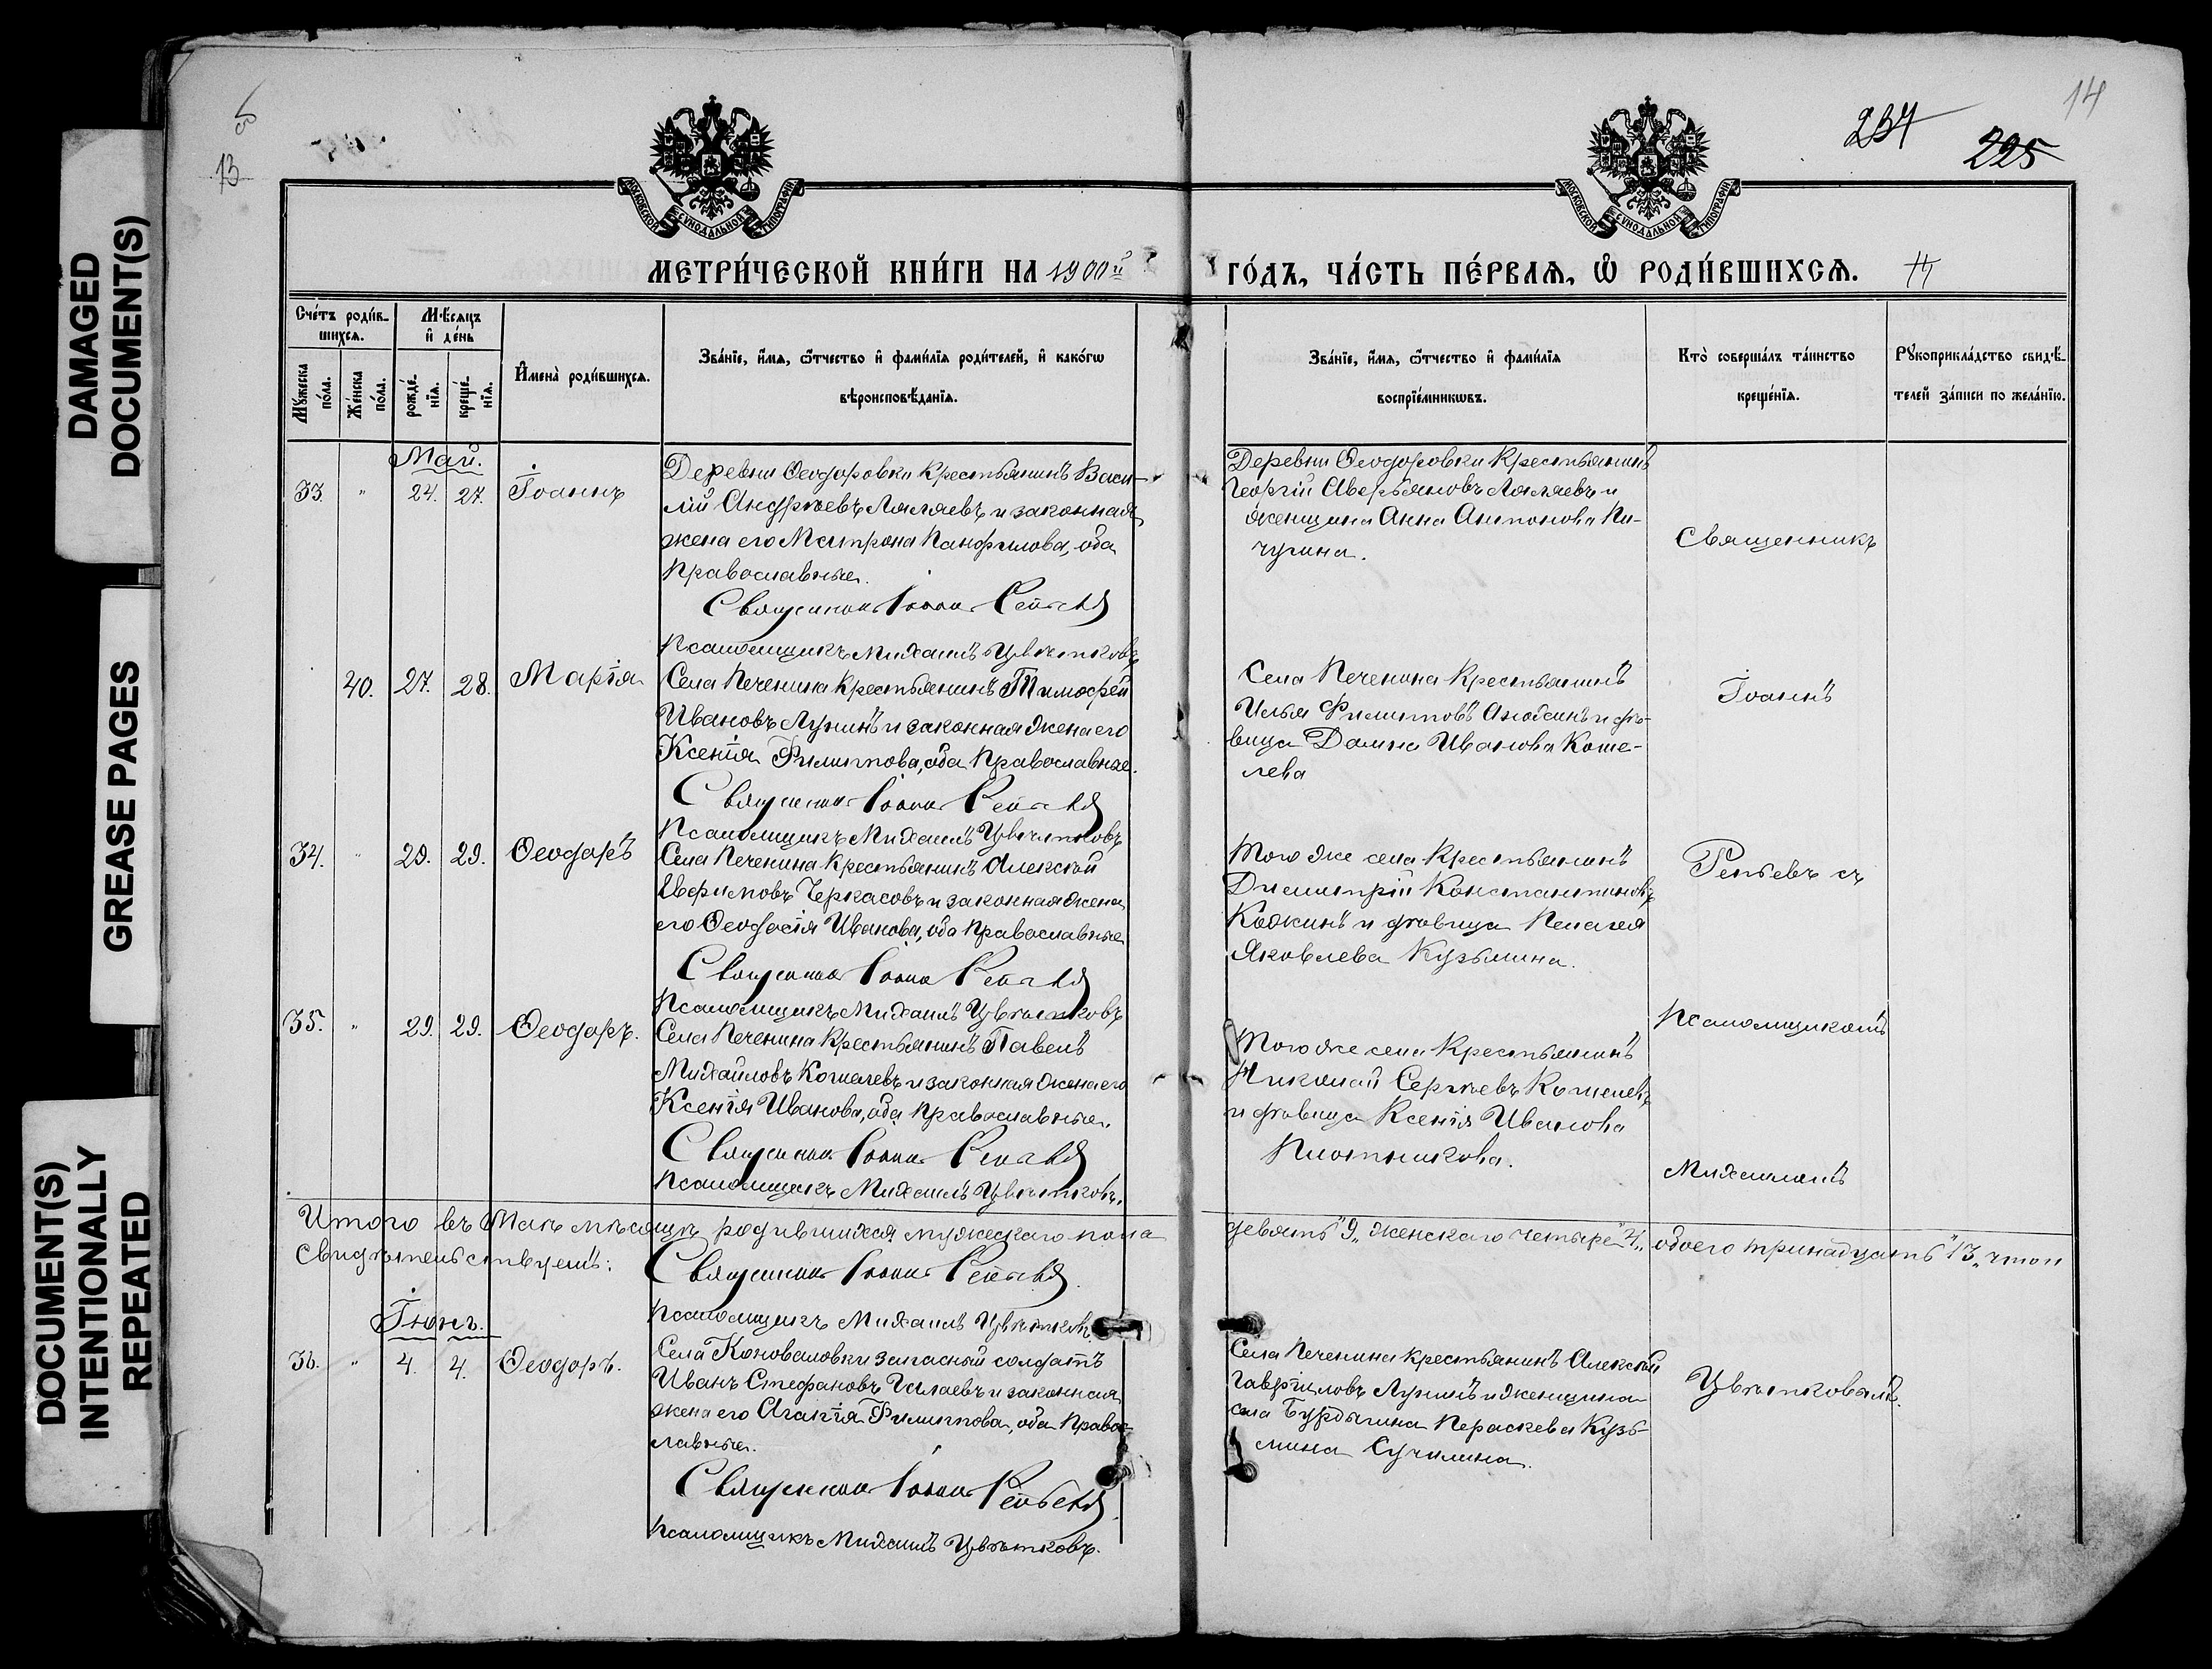 DAMAGED
DOCUMENT(S)
GREASE PAGES
DOCUMENT(S)
INTENTIONALLY
REPEATED
13
14
225
МОСКОВСКОЙ СѴНОДАЛЬНОЙ ТИПОГРАФІИ
МОСКОВСКОЙ СѴНОДАЛЬНОЙ ТИПОГРАФІИ
МЕТРИ́ЧЕСКОЙ КНИ́ГИ НА 1900й ГО́ДЪ, ЧА́СТЬ ПЕ́РВАѦ, Ѡ҆ РОДИ́ВШИХСѦ.
Сче́тъ роди́в-
шихсѧ.
Мѣ́сѧцъ
и҆ де́нь
Мꙋ́жеска
по́ла.
Же́нска
по́ла.
рожде́-
нїѧ.
креще́-
нїѧ.
И҆мена̀ роди́вшихсѧ.
Зва́нїе, и҆́мѧ, ѻ҆́тчество и҆ фами́лїѧ роди́телей, и҆ како́гѡ
вѣроисповѣ́данїѧ.
Зва́нїе, и҆́мѧ, ѻ҆́тчество и҆ фами́лїѧ
воспрїе́мникѡвъ.
Кто̀ соверша́лъ та́инство
креще́нїѧ.
Рꙋкоприкла́дство свидѣ́-
телей за́писи по жела́нїю.
Май.
33. " 24. 27. Іоаннъ
Деревни Ѳеодоровки крестьянинъ Васи-
лій Андреевъ Лаляевъ и законная
жена его Матрона Панфилова, оба
Православные.
Священник Іоанн Репьев
Псаломщикъ Михаилъ Цвѣтковъ
Деревни Ѳеодоровки Крестьянинъ
Георгій Аверьяновъ Лаляевъ и
женщина Анна Антонова Пи-
чугина.
Священникъ
40. 27. 28. Марія
Села Печенина крестьянинъ Тимофей
Ивановъ Лунинъ и законная жена его
Ксенія Филиппова, оба Православные.
Священник Іоанн Репьев
Псаломщикъ Михаилъ Цвѣтковъ
Села Печенина Крестьянинъ
Илья Филипповъ и дѣ-
вица Домна Иванова Коше-
лева
Іоаннъ
34. " 29. 29. Ѳеодоръ
Села Печенина крестьянинъ Алексѣй
Ефимовъ Черкасовъ и законная жена
его Ѳеодосія Иванова, оба Православные
Священник Іоанн Репьев
Псаломщикъ Михаилъ Цвѣтковъ
Того же села Крестьянинъ
Димитрій Константиновъ
Кожинъ и дѣвица Пелагея
Яковлева Кузьмина.
Репьевъ съ
35. " 29. 29. Ѳеодоръ.
Села Печенина крестьянинъ Павелъ
Михайловъ Кошелевъ и законная жена его
Ксенія Иванова, оба Православные.
Священник Іоанн Репьев
Псаломщикъ Михаилъ Цвѣтковъ.
Того же села Крестьянинъ
Николай Сергѣевъ Кошелевъ
и дѣвица Ксенія Иванова
Плотникова.
Псаломщикомъ
Михаиломъ
Итого въ Маѣ мѣсяцѣ родившихся мужескаго пола девять "9" женскаго четыре "4", обоего тринадцать "13", что и
Свидѣтельствуемъ: Священник Іоанн Репьев
Псаломщикъ Михаилъ Цвѣтковъ.
Іюнь.
36. " 4. 4. Ѳеодоръ.
Села Коноваловки запасный солдатъ
Иванъ Стефановъ и законная
жена его Агапія Филиппова, оба Правос-
лавные.
Священник Іоанн Репьев
Псаломщикъ Михаилъ Цвѣтковъ.
Села Печенина крестьянинъ Алексѣй
Гавриловъ Лунинъ и женщина
села Бурдыгина Параскева Кузь-
мина Сучилина.
Цвѣтковымъ.